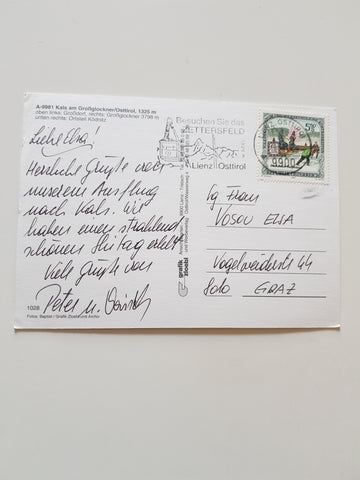 A-9981 Kals am Großglockner/Osttirol, 1325 m
oben links: Großdorf, rechts: Großglockner 3798 m
unten rechts: Ortsteil Ködnitz
Liebe Elsa!
Herzliche Grüße von
unserem Ausflug
nach Kals. Wir
haben einen strahlend
schönen Skitag erlebt
Viele Grüße von
Peter u.
1028
Fotos: Baptist / Grafik Zloebl und Archiv
grafik
zloebl
Besuchen Sie das
ZETTERSFELD
Lienz Osttirol
LIENZ, OSTTIROL
9900
5S
REPUBLIK
Frau
VOSOU ELSA
Vogelweiderstr 44
8010 GRAZ